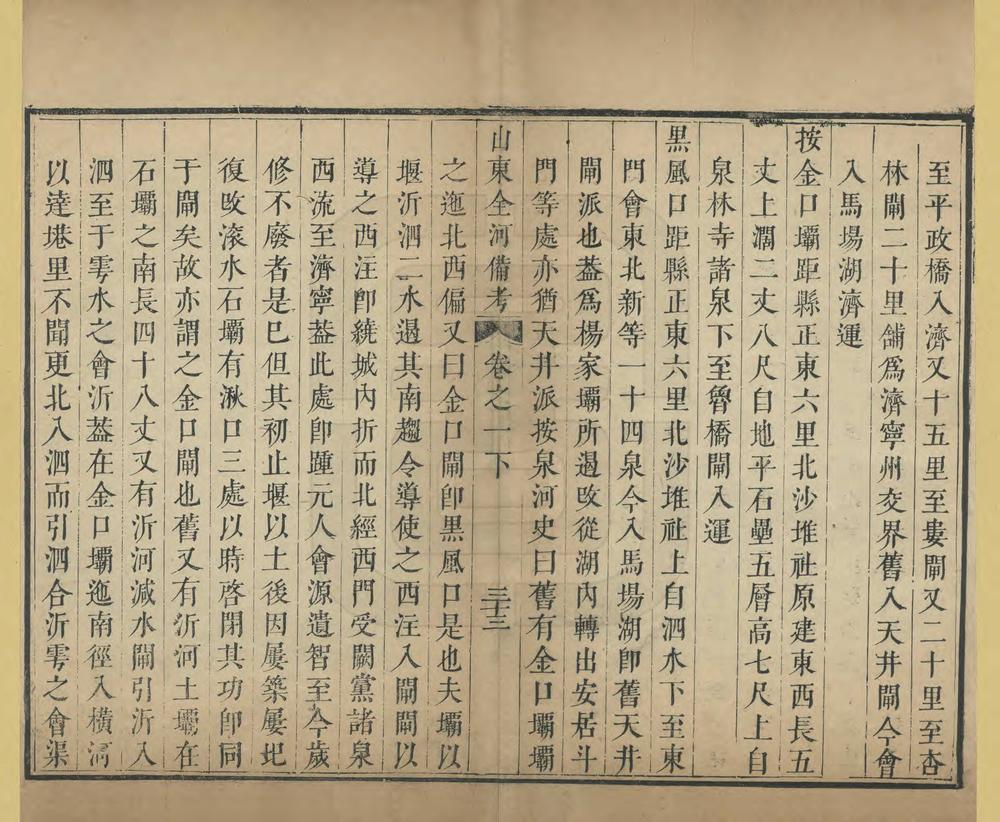 至平政橋入濟又十五里至婁閘又二十里至杏
林閘二十里舖爲濟寧州交界舊入天井閘今會
入馬場湖濟運
按金口壩距縣正東六里北沙堆社原建東西長五
丈上濶二丈八尺自地平石壘五層高七尺上自
泉林寺諸泉下至魯橋閘入運
黑風口距縣正東六里北沙堆社上自泗水下至東
門會東北新等一十四泉今入馬場湖卽舊天井
閘派也葢爲楊家壩所遏改從湖內轉出安居斗
門等處亦猶天井派按泉河史曰舊有金口壩壩
山東全河備考 卷之一下 三十三
之迤北西偏又曰金口閘卽黑風口是也夫壩以
堰沂泗二水遏其南趨令導使之西注入閘閘以
導之西注卽繞城內折而北經西門受闕黨諸泉
西流至濟寧葢此處卽踵元人會源遺智至今歲
修不廢者是巳但其初止堰以土後因屢築屢圮
復改滚水石壩有湫口三處以時啓閉其功卽同
于閘矣故亦謂之金口閘也舊又有沂河土壩在
石壩之南長四十八丈又有沂河減水閘引沂入
泗至于雩水之會沂葢在金口壩迤南徑入橫河
以達塂里不聞更北入泗而引泗合沂雩之會渠